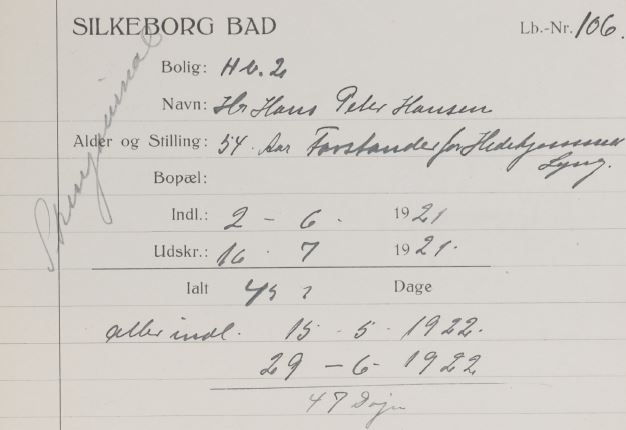 SILKEBORG BAD
Lb.-Nr. 106.
Bolig: H b. 2
Navn: Hr Hans Peter Hansen
Alder og Stilling: 54 Aar Forstander for Hedehjemmet
Lyng.
Bopæl:
Indl.: 2 - 6. 1921
Udskr.: 16. 7 1921.
Ialt 45 Dage
atter indl. 15 - 5. 1922.
29 - 6 1922
47 Døgn